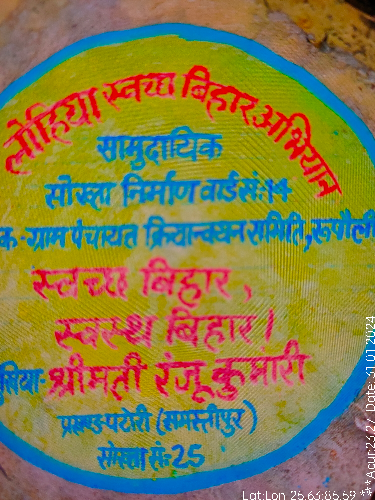 लोहिया स्वच्छ बिहार अभियान
सामुदायिक
सोख्ता निर्माण वार्ड सं:-14
क-ग्राम पंचायत क्रियान्वयन समिति, रूपौली
स्वच्छ बिहार,
स्वस्थ बिहार।
खिया-श्रीमती रंजू कुमारी
प्रखण्ड-पटोरी (समस्तीपुर)
सोख्ता सं:-25
Lat:Lon 25.63:85.59 ***Acur:23.27 Date:31.01.2024